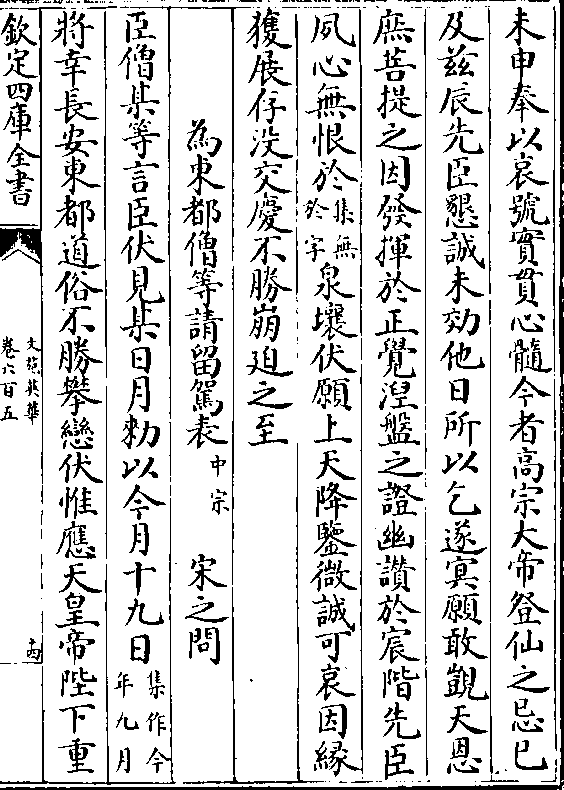 未申奉以哀號實貫心髓今者高宗大帝登仙之忌已
及兹辰先臣懇誠未効他日所以乞遂冥願敢覬天恩
庶菩提之因發揮於正覺湼盤之證幽讚於宸階先臣
夙心無恨於集無於字泉壤伏願上天降鑒微誠可哀因緣
獲展存没交慶不勝崩迫之至
為東都僧等請留駕表中宗 宋之問
臣僧某等言臣伏見某日月勑以今月十九日集作今年九月
將幸長安東都道俗不勝攀戀伏惟應天皇帝陛下重
欽定四庫全書 文苑英華 卷六百五 十四